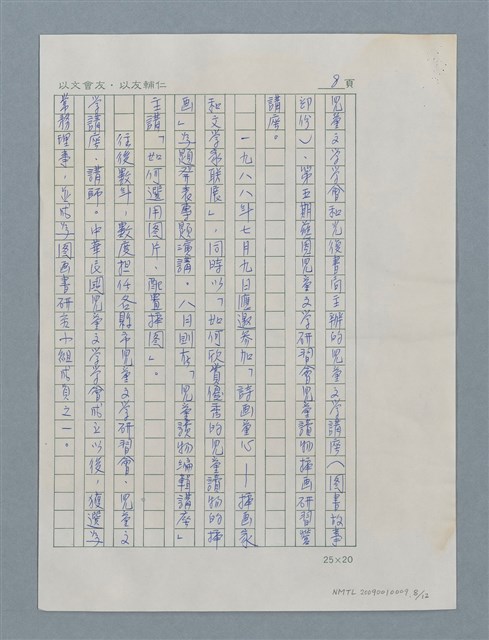 以文會友・以友輔仁
8頁
兒童文學學會和光復書局主辦的兒童文學講座(圖書故事
部份)、第五期磺園兒童文學研習會兒童讀物插画研習營
講座。
一九八八年七月九日應邀參加「詩画童心──插画家
和文學家联展」,同時以「如何欣賞優秀的兒童讀物的插
画」為題發表專題演講。八月則在「兒童讀物編輯講座」
主講「如何選用圖片、配置插圖」。
往後數年,數度担任各縣市兒童文學研習會、兒童文
學講座、講師。中華民國兒童文學學會成立以後,復選為
常務理事,並成為圖画書研究小組成員之一。
25×20
NMTL 20090010009 8/12